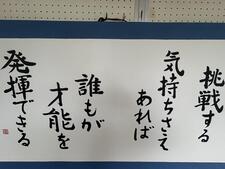 挑戦する
気持ちさえ
あれば
誰もが
才能を
発揮できる